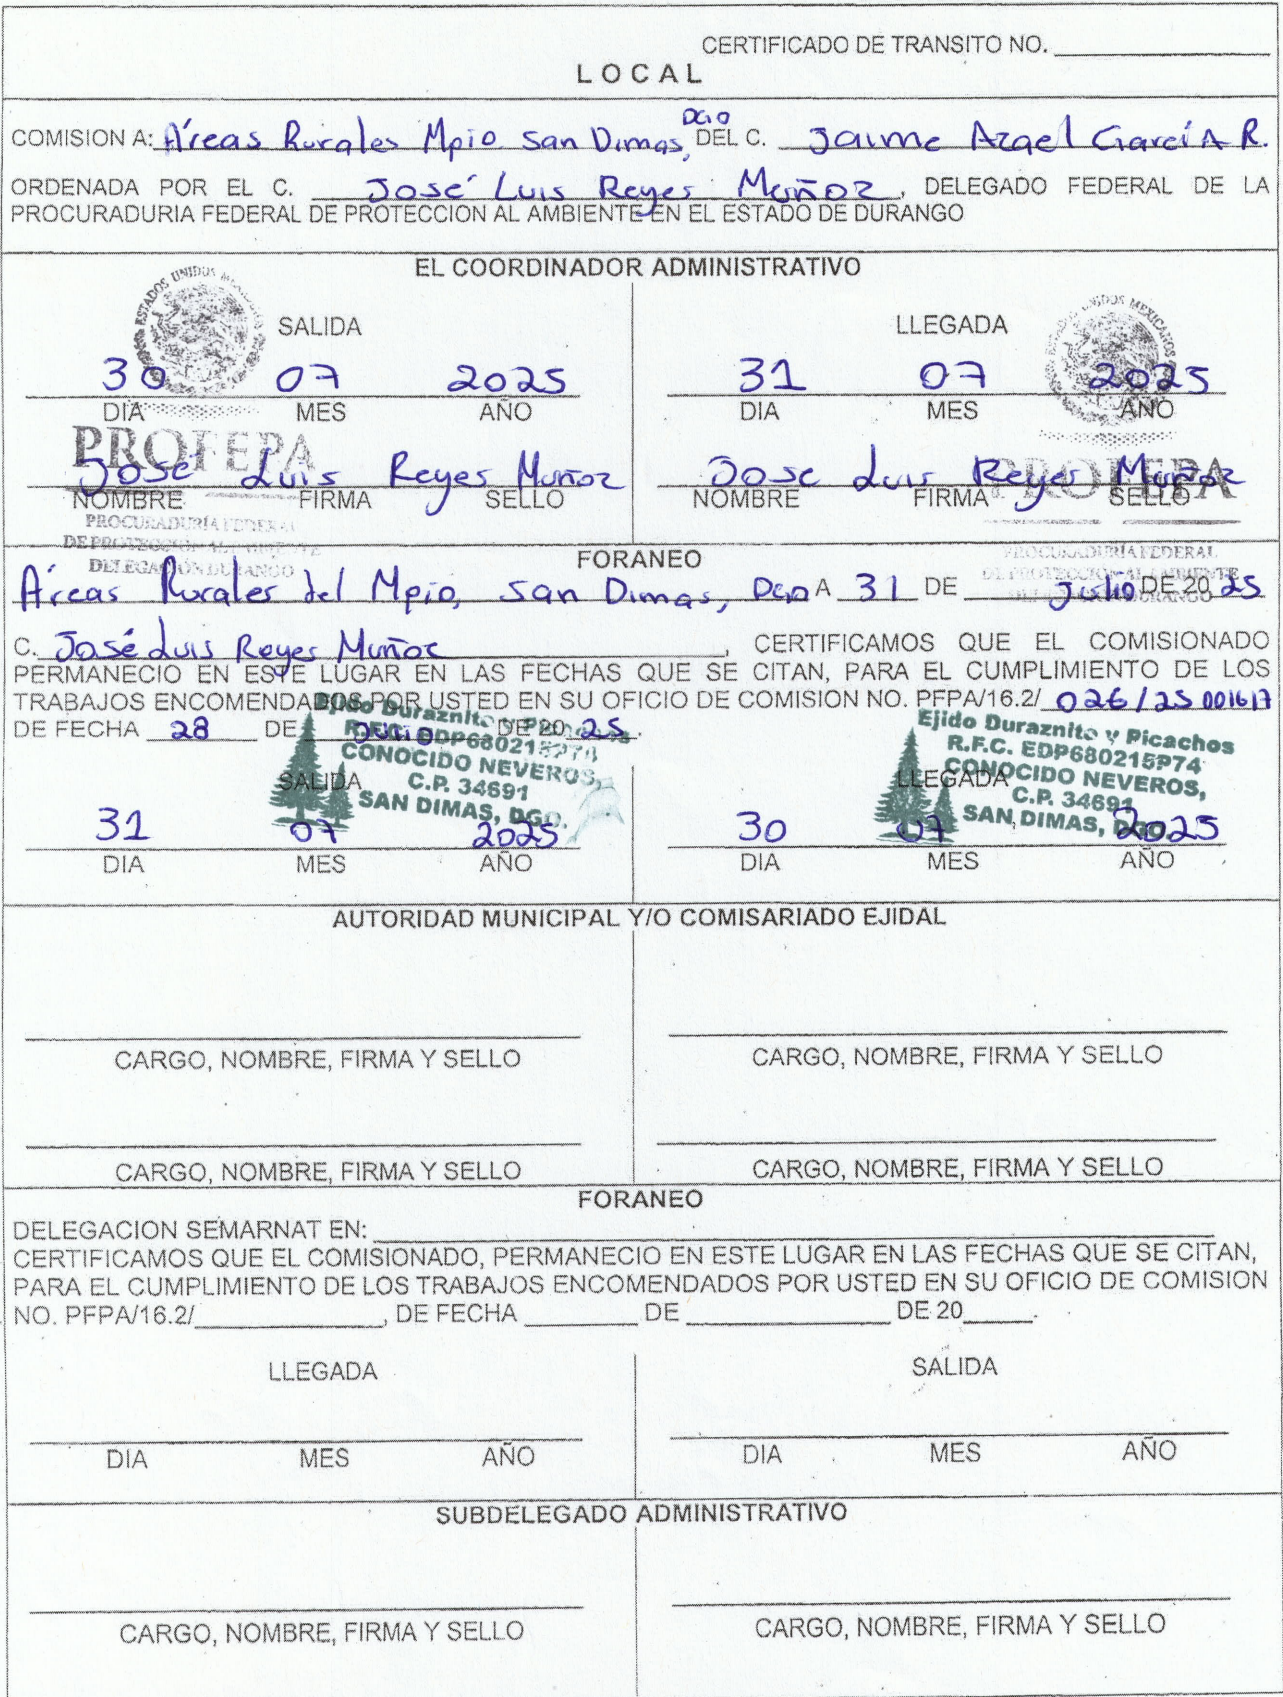 CERTIFICADO DE TRANSITO NO.
LOCAL
COMISION A: Áreas Rurales Mpio San Dimas, Dgo DEL C. Jaime Azael García R.
ORDENADA POR EL C. José Luis Reyes Muñoz, DELEGADO FEDERAL DE LA
PROCURADURIA FEDERAL DE PROTECCION AL AMBIENTE EN EL ESTADO DE DURANGO
EL COORDINADOR ADMINISTRATIVO
ESTADOS UNIDOS
UNIDOS MEXICANOS
SALIDA LLEGADA
30 07 2025 31 07 2025
DIA MES AÑO DIA MES AÑO
PROFEPA PROFEPA
José Luis Reyes Muñoz Jose Luis Reyes Muñoz
NOMBRE FIRMA SELLO NOMBRE FIRMA SELLO
PROCURADURÍA FEDERAL PROCURADURÍA FEDERAL
DE PROTECCIÓN AL AMBIENTE DE PROTECCIÓN AL AMBIENTE
DELEGACIÓN DURANGO DELEGACIÓN DURANGO
FORANEO
Áreas Rurales del Mpio, San Dimas, Dgo A 31 DE Julio DE 20 25
C. José Luis Reyes Muñoz, CERTIFICAMOS QUE EL COMISIONADO
PERMANECIO EN ESTE LUGAR EN LAS FECHAS QUE SE CITAN, PARA EL CUMPLIMIENTO DE LOS
TRABAJOS ENCOMENDADOS POR USTED EN SU OFICIO DE COMISION NO. PFPA/16.2/ 026/25 001617
DE FECHA 28 DE Julio DE 20 25.
Ejido Duraznito y Picachos
R.F.C. EDP680215P74
CONOCIDO NEVEROS,
C.P. 34691
SAN DIMAS, DGO.
Ejido Duraznito y Picachos
R.F.C. EDP680215P74
CONOCIDO NEVEROS,
C.P. 34691
SAN DIMAS, DGO.
SALIDA LLEGADA
31 07 2025 30 07 2025
DIA MES AÑO DIA MES AÑO
AUTORIDAD MUNICIPAL Y/O COMISARIADO EJIDAL
CARGO, NOMBRE, FIRMA Y SELLO CARGO, NOMBRE, FIRMA Y SELLO
CARGO, NOMBRE, FIRMA Y SELLO CARGO, NOMBRE, FIRMA Y SELLO
FORANEO
DELEGACION SEMARNAT EN:
CERTIFICAMOS QUE EL COMISIONADO, PERMANECIO EN ESTE LUGAR EN LAS FECHAS QUE SE CITAN,
PARA EL CUMPLIMIENTO DE LOS TRABAJOS ENCOMENDADOS POR USTED EN SU OFICIO DE COMISION
NO. PFPA/16.2/, DE FECHA DE DE 20.
LLEGADA SALIDA
DIA MES AÑO DIA MES AÑO
SUBDELEGADO ADMINISTRATIVO
CARGO, NOMBRE, FIRMA Y SELLO CARGO, NOMBRE, FIRMA Y SELLO